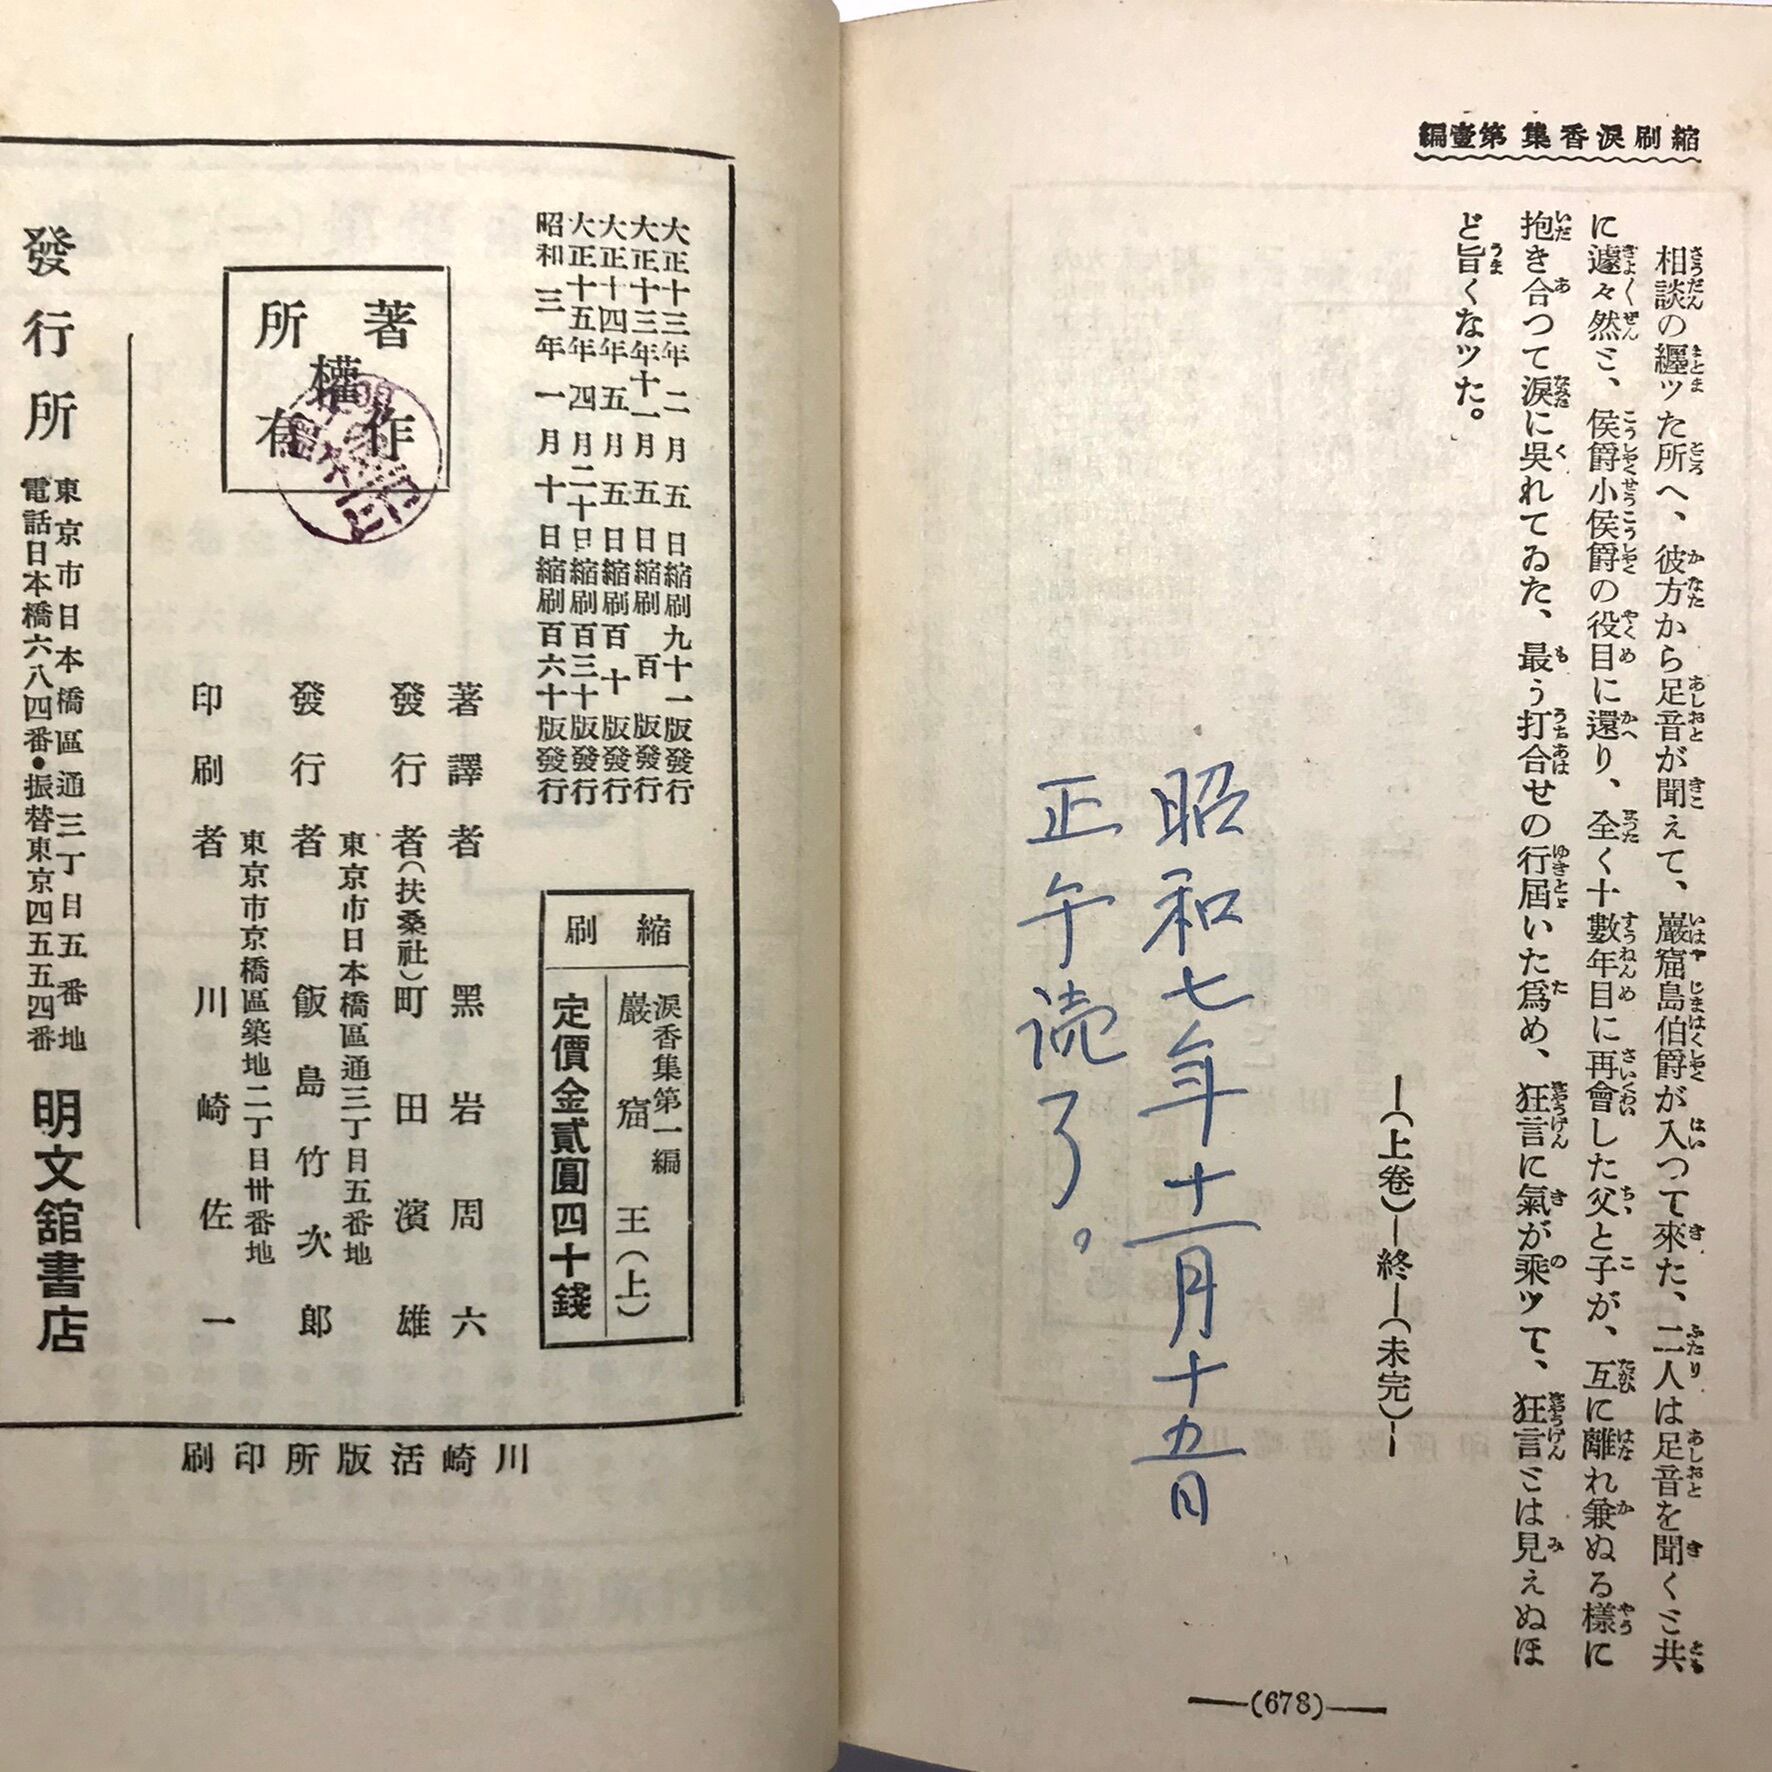 縮刷涙香集 第壹編
相談の纒ッた所へ、彼方から足音が聞えて、巖窟島伯爵が入つて來た、二人は足音を聞くと共
に遽々然と、侯爵小侯爵の役目に還り、全く十數年目に再會した父と子が、互に離れ兼ぬる樣に
抱き合つて涙に呉れてゐた、最う打合せの行屆いた爲め、狂言に氣が乘ツて、狂言とは見えぬほ
ど旨くなツた。
―(上卷)―終―(未完)―
昭和七年十一月十九日
正午読了。
―(678)―
大正十三年二月五日縮刷九十一版發行
大正十三年十一月五日縮刷百版發行
大正十四年五月五日縮刷百十版發行
大正十五年四月二十日縮刷百三十版發行
昭和三年一月十日縮刷百六十版發行
縮刷
涙香集第一編
巖窟王(上)
定價金貳圓四十錢
著作權所有
著譯者 黑岩周六
發行者(扶桑社)町田濱雄
東京市日本橋區通三丁目五番地
發行者 飯島竹次郎
東京市京橋區築地二丁目卅番地
印刷者 川崎佐一
發行所
東京市日本橋區通三丁目五番地
電話日本橋六八四番●振替東京四五五四番
明文舘書店
川崎活版所印刷